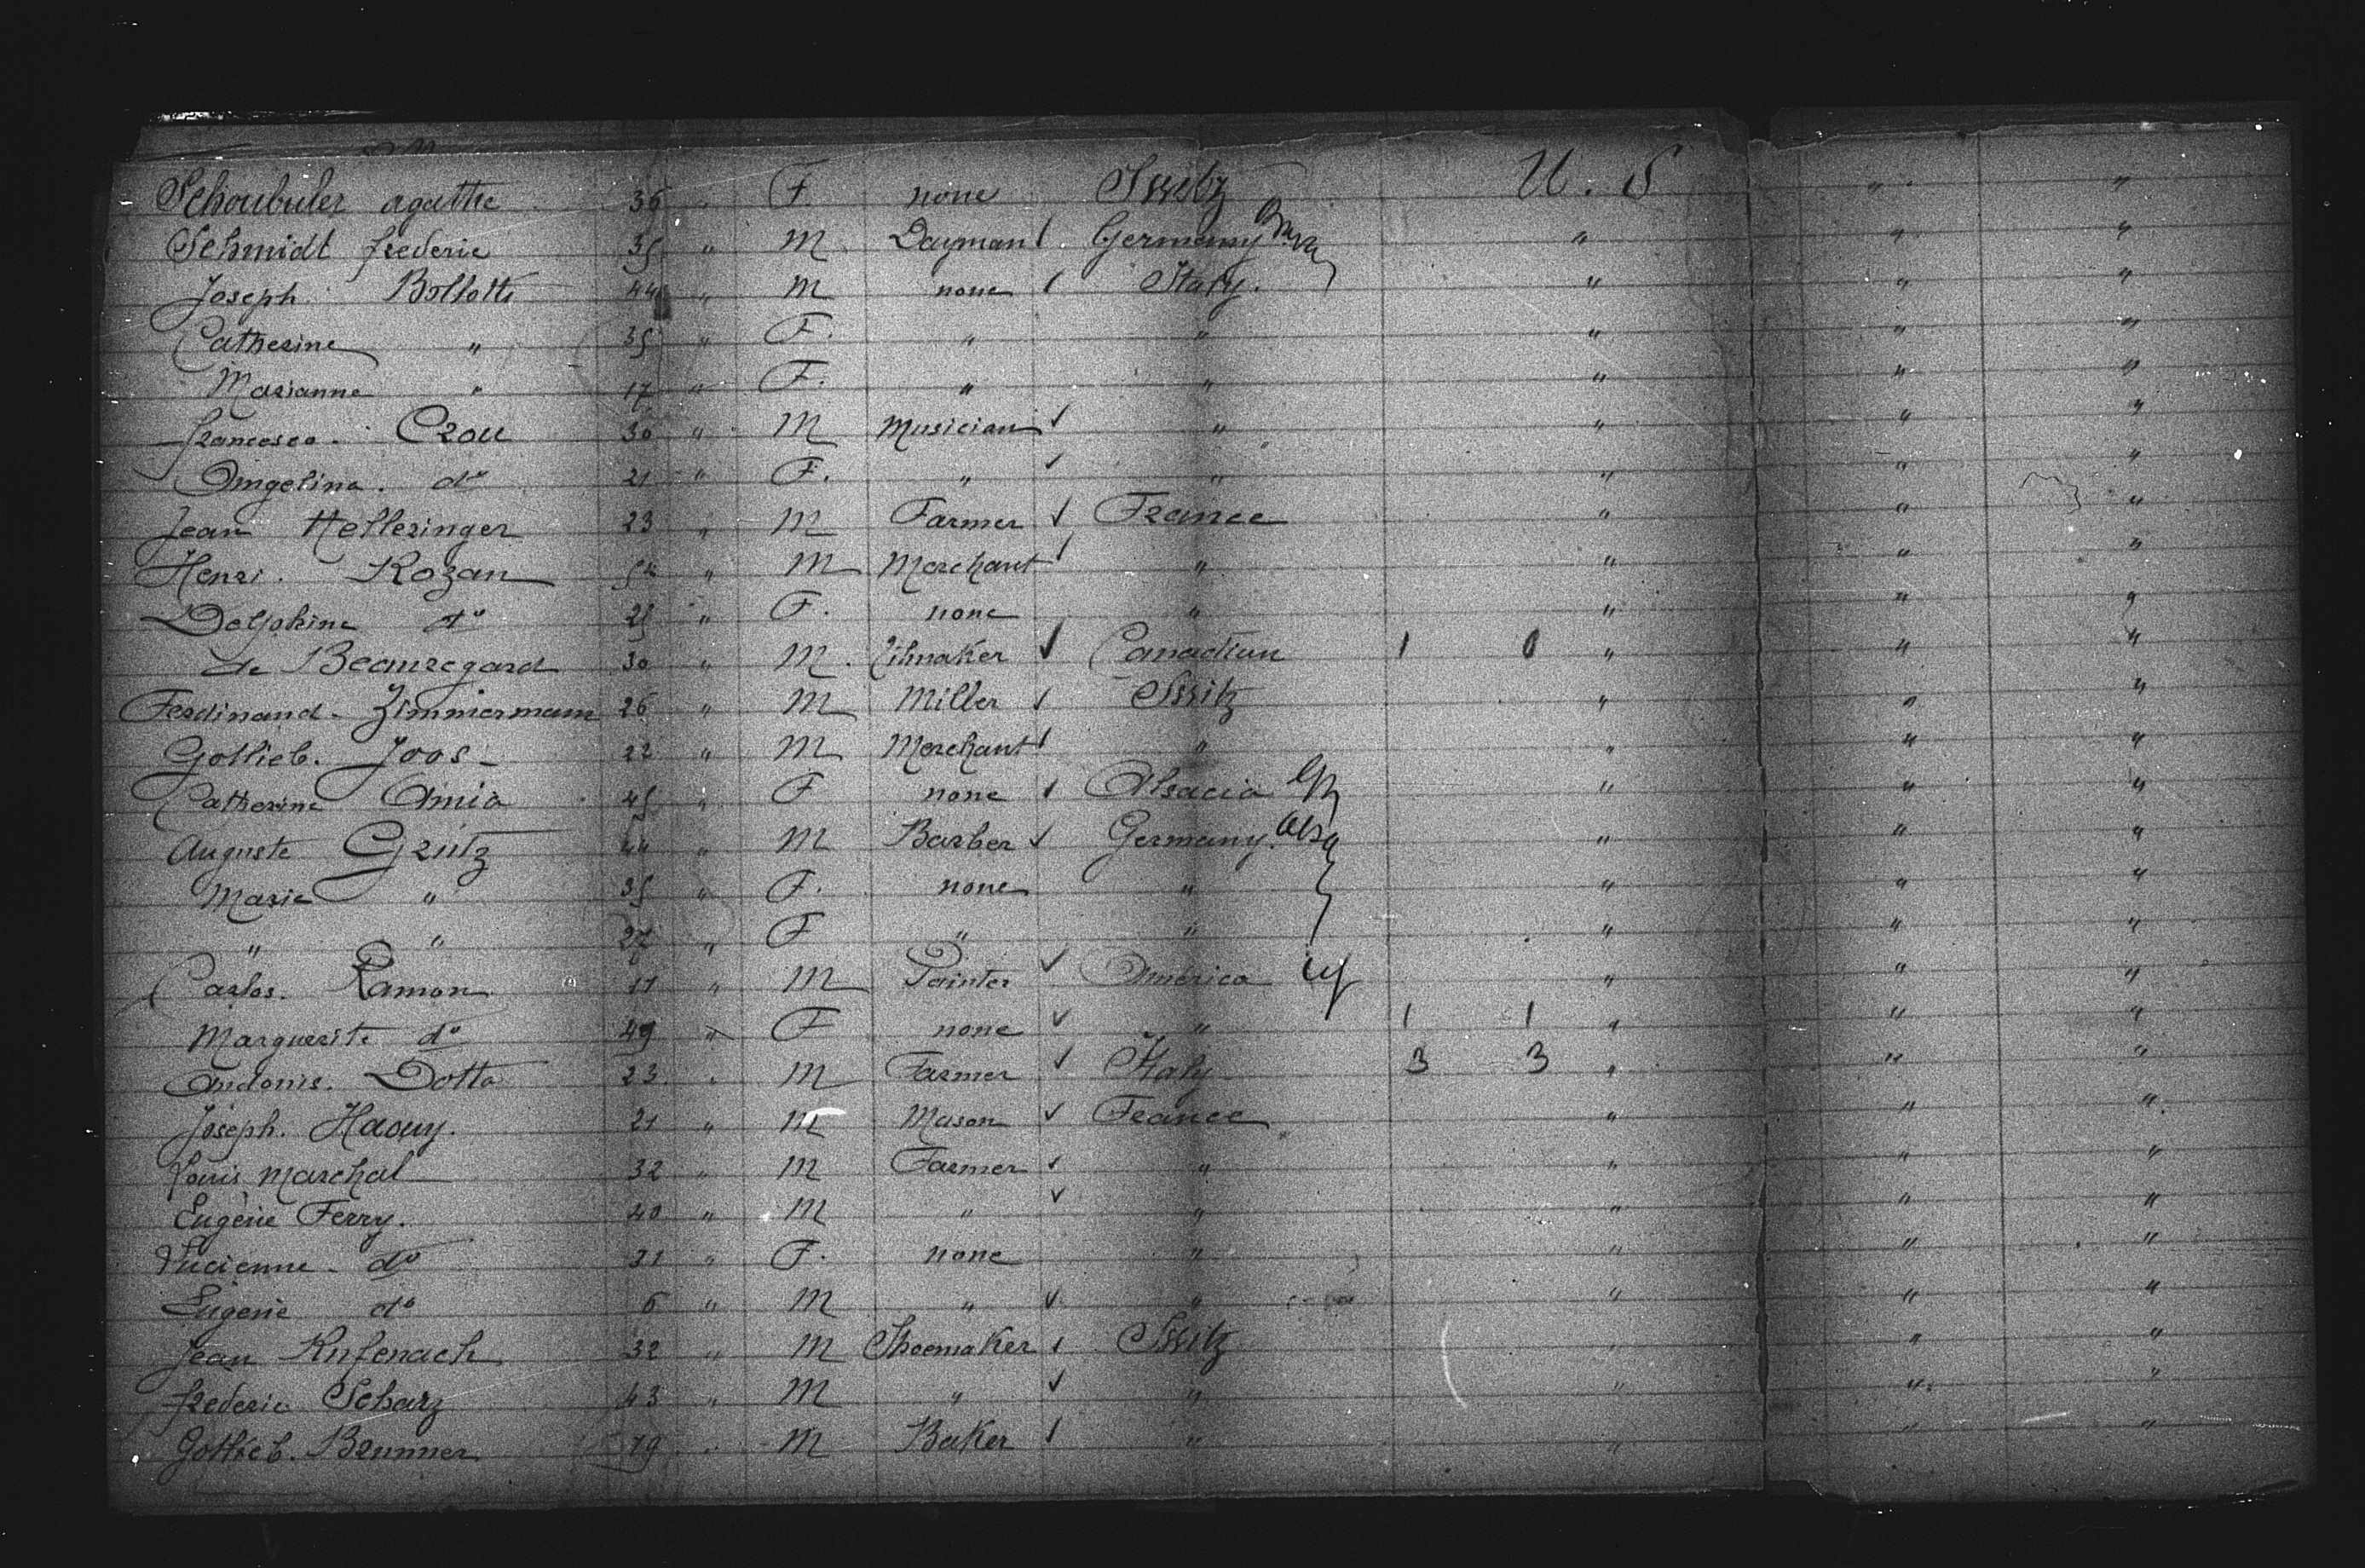 Schoubuler agathe 36 " F. none Switz U. S " "
Schmidt frederic 35 " M. Dayman Germany " " "
Joseph Bollotti 44 " M none Italy. " " "
Catherine " 35 " F. " " " " "
Marianne " 17 " F. " " " " "
francesco. Crou 30 " M Musician " " " "
Angelina. do 21 " F. " " " " "
Jean Hellezinger 23 " M Farmer France " " "
Henri. Rozan 54 " M Merchant " " " "
Delphine do 25 " F. none " " " "
de Beauregard 30 " M. Canadian 1 0 " " "
Ferdinand. Zimmermann 26 " M Miller Switz " " "
Gottlieb. Joos 22 " M Merchant " " " "
Catherine Amia 45 " F none Alsacia " " "
Auguste Grutz 44 " M Barber Germany. " " "
Marie " 35 " F. none " " " "
" " 27 " F " " " " "
Carlos. Ramon 11 " M Painter America " " "
Marguerite do 49 " F none " 1 1 " " "
Andonis. Dotta 23 " M Farmer Italy 3 3 " " "
Joseph. Haouy. 21 " M Mason France " " "
Louis Marchal 32 " M Farmer " " " "
Eugène Ferry. 40 " M " " " " "
Lucienne do 31 " F. none " " " "
Eugène do 6 " M " " " " "
Jean Rufenach 32 " M Shoemaker Switz " " "
frederic Scharz 43 " M " " " " "
Gottlieb. Brunner 19 " M Baker " " " "